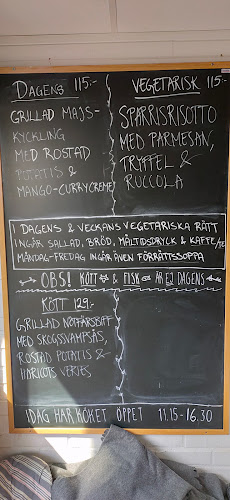 DAGENS 115:-
GRILLAD MAJS-
KYCKLING
MED ROSTAD
POTATIS &
MANGO-CURRYCREME
VEGETARISK 115:-
SPARRISRISOTTO
MED PARMESAN,
TRYFFEL &
RUCCOLA
I DAGENS & VECKANS VEGETARISKA RÄTT
INGÅR SALLAD, BRÖD, MÅLTIDSDRYCK & KAFFE/TE
MÅNDAG-FREDAG INGÅR ÄVEN FÖRRÄTTSSOPPA
OBS! KÖTT & FISK ÄR EJ DAGENS
KÖTT 129:-
GRILLAD NÖTFÄRSBIFF
MED SKOGSSVAMPSÅS,
ROSTAD POTATIS &
HARICOTS VERTES
IDAG HAR KÖKET ÖPPET 11.15-16.30